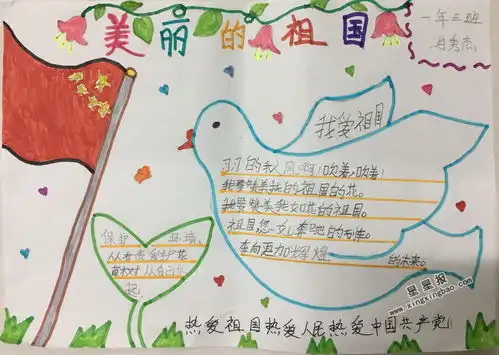 美丽的祖国
一年三班
我爱祖国
习习的秋风啊！吹着，吹着！
我要赞美我的祖国的花。
我要赞美我如花的祖国。
祖国，您如奔驰的列车。
奔向更加辉煌的未来。
保护环境，
从看
从自己
起。
热爱祖国热爱人民热爱中国共产党
星星报
www.xingxingbao.com